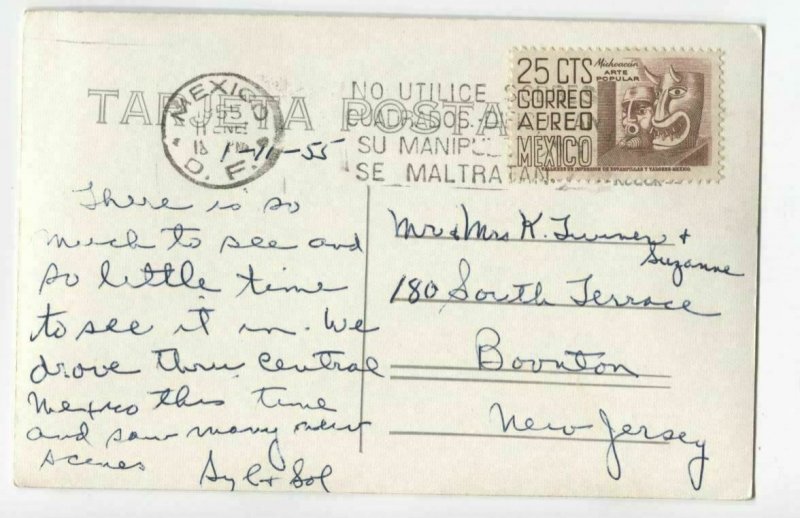 TARJETA POSTAL
MEXICO
55
11 ENE
D. F.
NO UTILICE SOBRES
CUADRADOS. EN
SU MANIPUL
SE MALTRATAN
25 CTS
CORREO
AEREO
MEXICO
Michoacán
ARTE
POPULAR
1-11-55
There is so
much to see and
so little time
to see it in. We
drove thru Central
Mexico this time
and saw many new
scenes
Syl + Sol
Mr & Mrs K. Turner +
Suzanne
180 South Terrace
Boonton
New Jersey